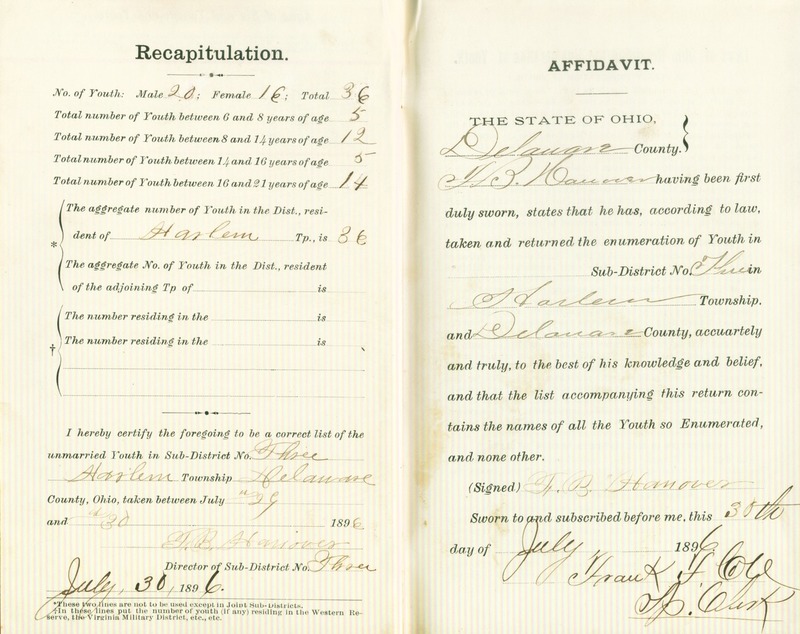 Recapitulation.
No. of Youth: Male 20; Female 16; Total 36
Total number of Youth between 6 and 8 years of age 5
Total number of Youth between 8 and 14 years of age 12
Total number of Youth between 14 and 16 years of age 5
Total number of Youth between 16 and 21 years of age 14
The aggregate number of Youth in the Dist., resi-
* dent of Harlem Tp., is 36
The aggregate No. of Youth in the Dist., resident
of the adjoining Tp of is
The number residing in the is
† The number residing in the is
I hereby certify the foregoing to be a correct list of the
unmarried Youth in Sub-District No. Three
Harlem Township Delaware
County, Ohio, taken between July " 29
and " 30 1896
Director of Sub-District No. Three
July, 30, 1896.
*These two lines are not to be used except in Joint Sub-Districts.
†In these lines put the number of youth (if any) residing in the Western Re-
serve, the Virginia Military District, etc., etc.
AFFIDAVIT.
THE STATE OF OHIO,
Delaware County. }
Hanover having been first
duly sworn, states that he has, according to law,
taken and returned the enumeration of Youth in
Sub-District No. in
Harlem Township.
and Delaware County, accuartely
and truly, to the best of his knowledge and belief,
and that the list accompanying this return con-
tains the names of all the Youth so Enumerated,
and none other.
(Signed) T. B. Hanover
Sworn to and subscribed before me, this 30th
day of July 1896.
Frank F. 
Clerk